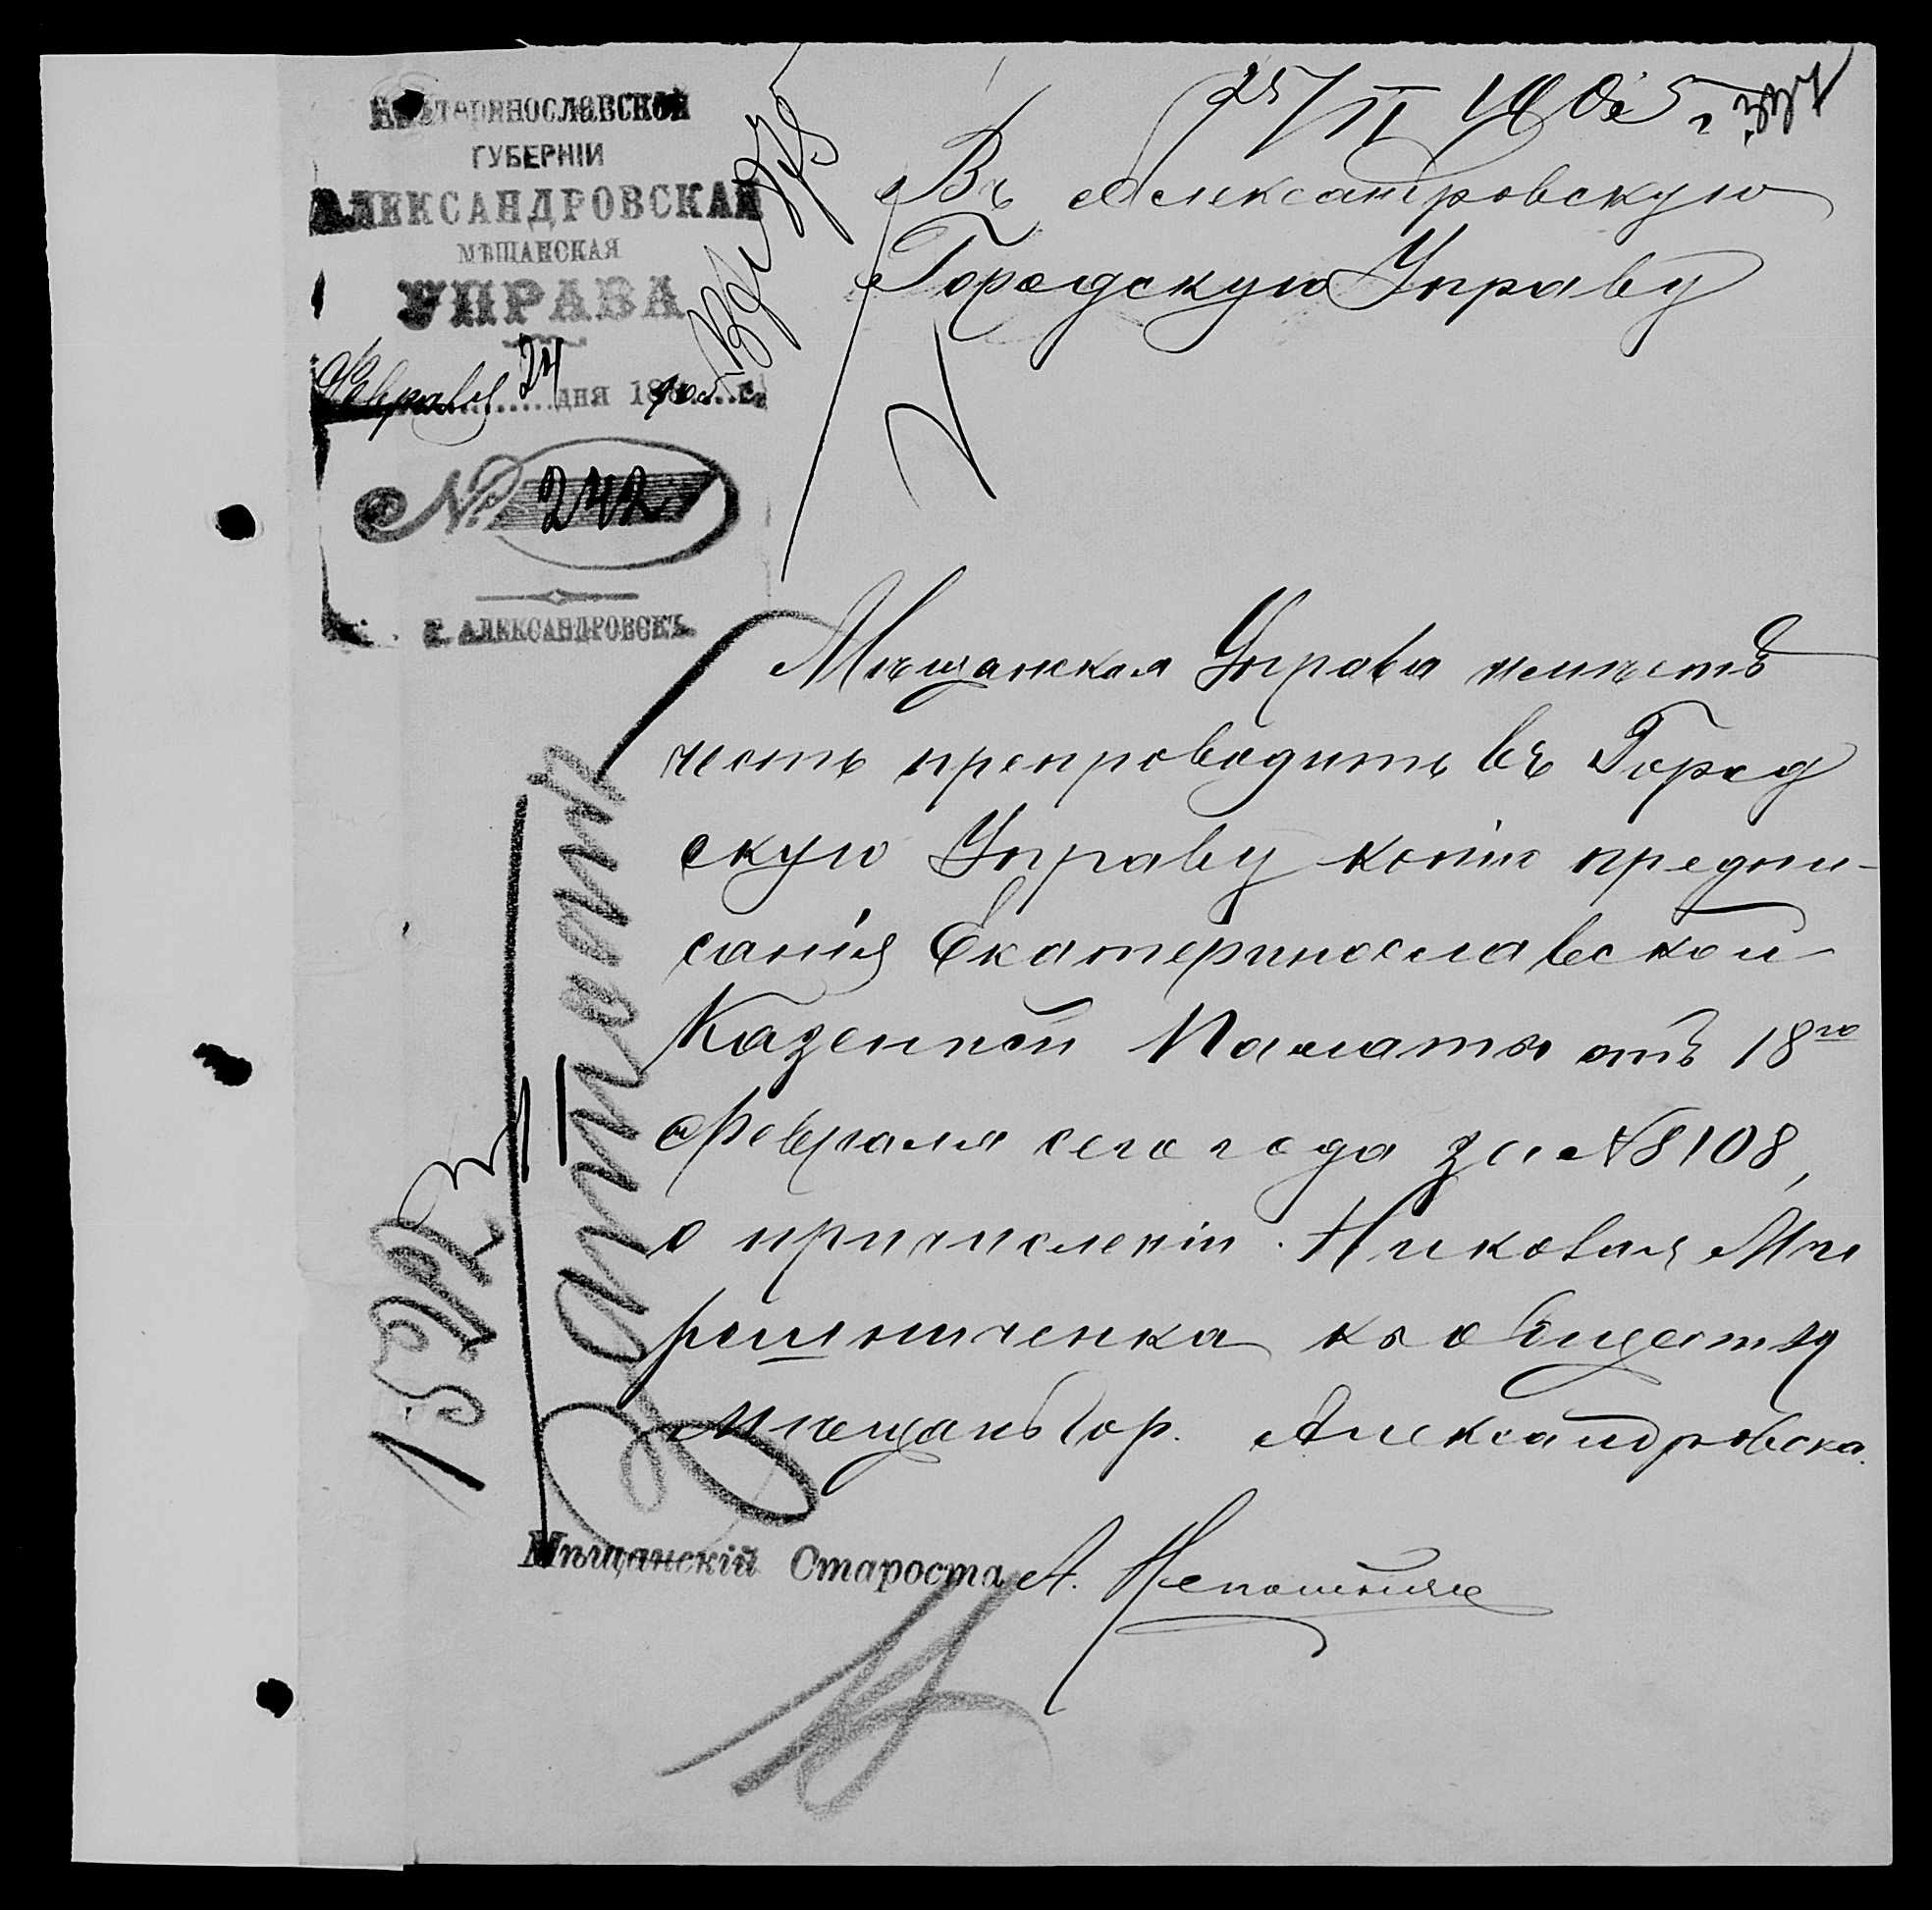 Екатеринославской
ГУБЕРНІИ
АЛЕКСАНДРОВСКАЯ
МѢЩАНСКАЯ
УПРАВА
Февраля 24 дня 1905 г.
№ 242
Г. АЛЕКСАНДРОВСКЪ
25/II 1905 г.
Въ Александровскую
Городскую Управу
Мѣщанская Управа имѣетъ
честь препроводить въ Город
скую Управу копію предпи-
санія Екатеринославской
Казенной Палаты отъ 18го
Февраля сего года за № 8108,
о причисленіи Николая Ми
рошниченка къ обществу
мѣщанъ гор. Александровска.
Мѣщанскій Староста А.